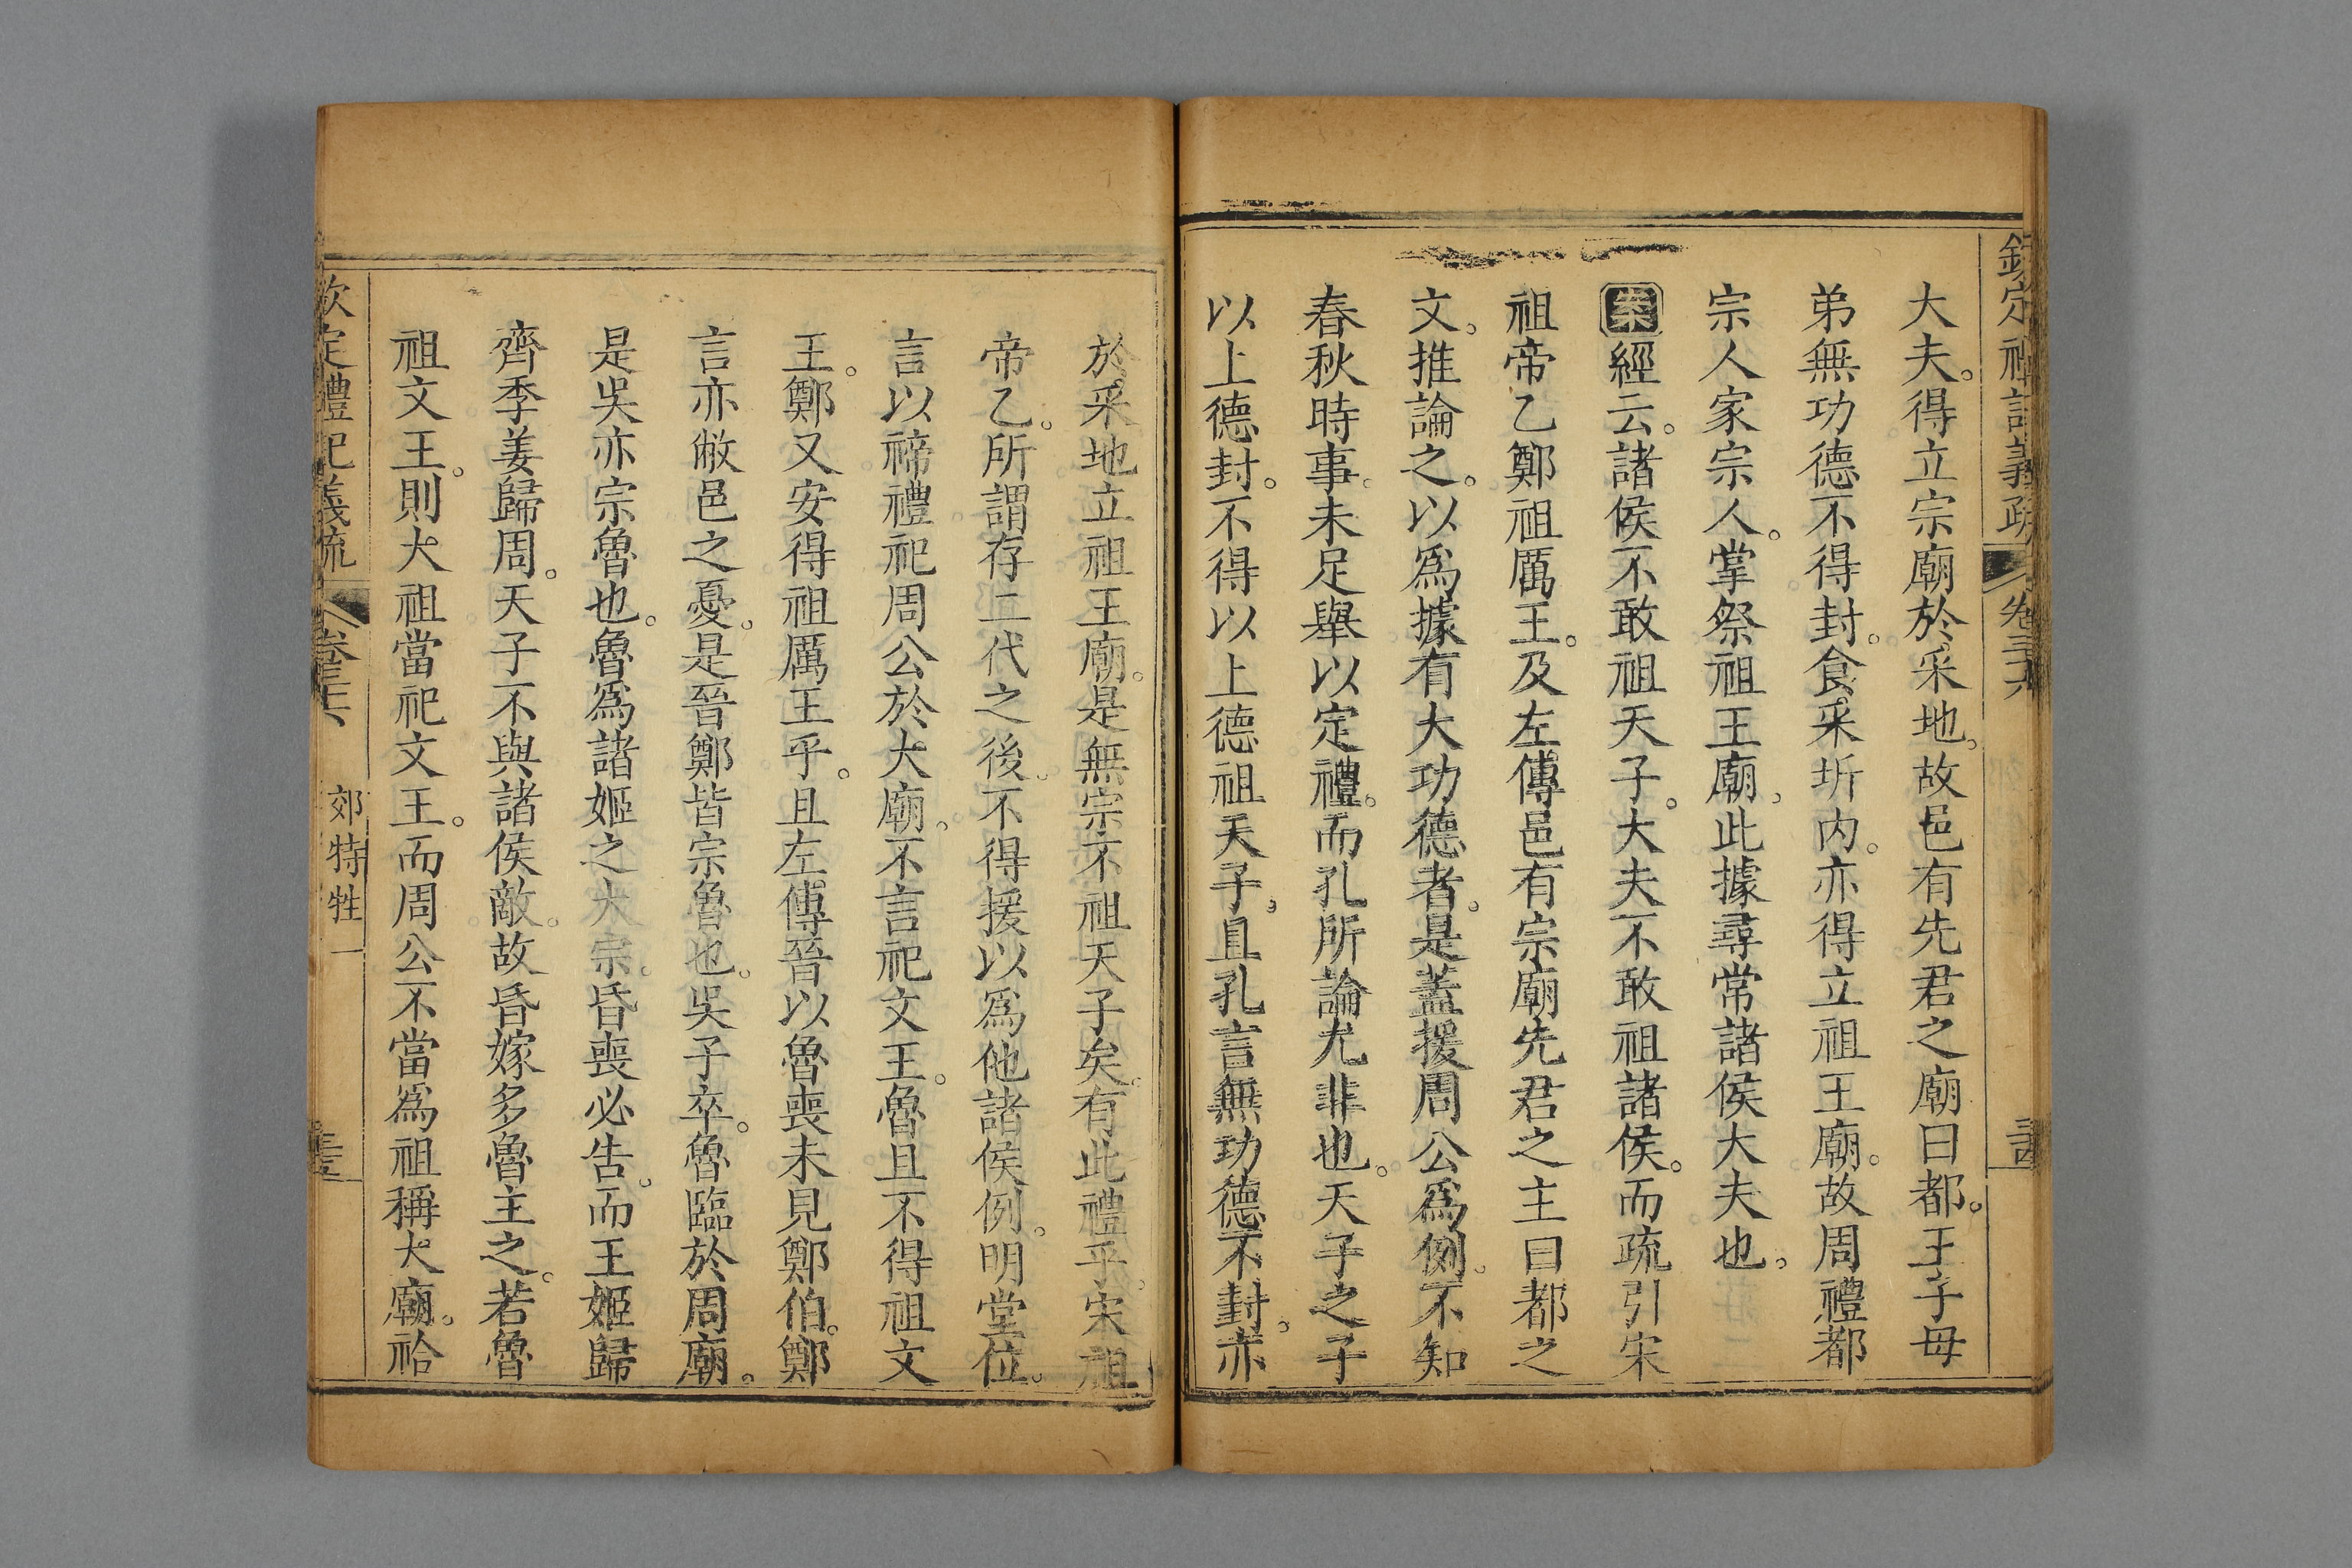 欽定禮記義疏 卷三十六
大夫。得立宗廟於采地。故邑有先君之廟曰都。王子母
弟無功德不得封。食采圻內。亦得立祖王廟。故周禮都
宗人家宗人。掌祭祖王廟。此據尋常諸侯大夫也。
案經云。諸侯不敢祖天子。大夫不敢祖諸侯。而疏引宋
祖帝乙鄭祖厲王。及左傳邑有宗廟先君之主曰都之
文。推論之。以爲據有大功德者。是蓋援周公爲例。不知
春秋時事。未足舉以定禮。而孔所論尤非也。天子之子
以上德封。不得以上德祖天子。且孔言無功德不封。亦
於采地立祖王廟。是無宗不祖天子矣。有此禮乎。宋祖
帝乙。所謂存二代之後。不得援以爲他諸侯例。明堂位。
言以禘禮祀周公於大廟。不言祀文王。魯且不得祖文
王。鄭又安得祖厲王乎。且左傳晉以魯喪未見鄭伯。鄭
言亦敝邑之憂。是晉鄭皆宗魯也。吳子卒。魯臨於周廟。
是吳亦宗魯也。魯爲諸姬之大宗。昏喪必告。而王姬歸
齊季姜歸周。天子不與諸侯敵。故昏嫁多魯主之。若魯
祖文王。則大祖當祀文王。而周公不當爲祖稱大廟。祫
欽定禮記義疏 卷三十六 郊特牲一